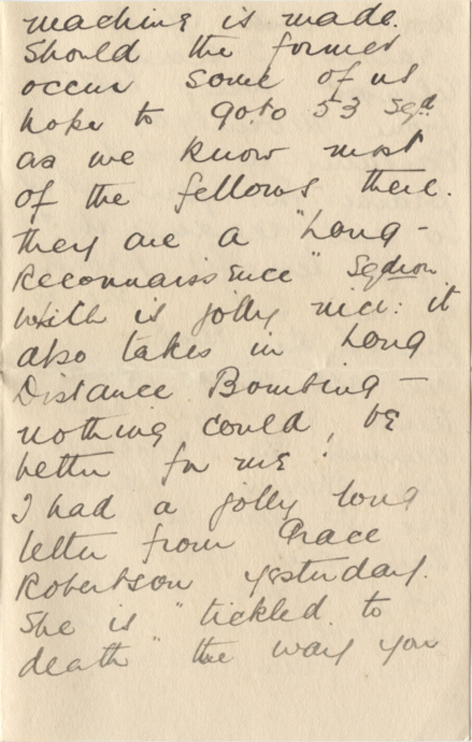 machine is made.
Should the former
occur some of us
hope to go to 53 Sqd.
as we know most
of the fellows there.
they are a "Long-
Reconnaissence" Sqdron
which is jolly nice: it
also takes in Long
Distance Bombing -
nothing could, be
better for me!
I had a jolly long
letter from Grace
Robertson yesterday.
She is "tickled to
death" the way you